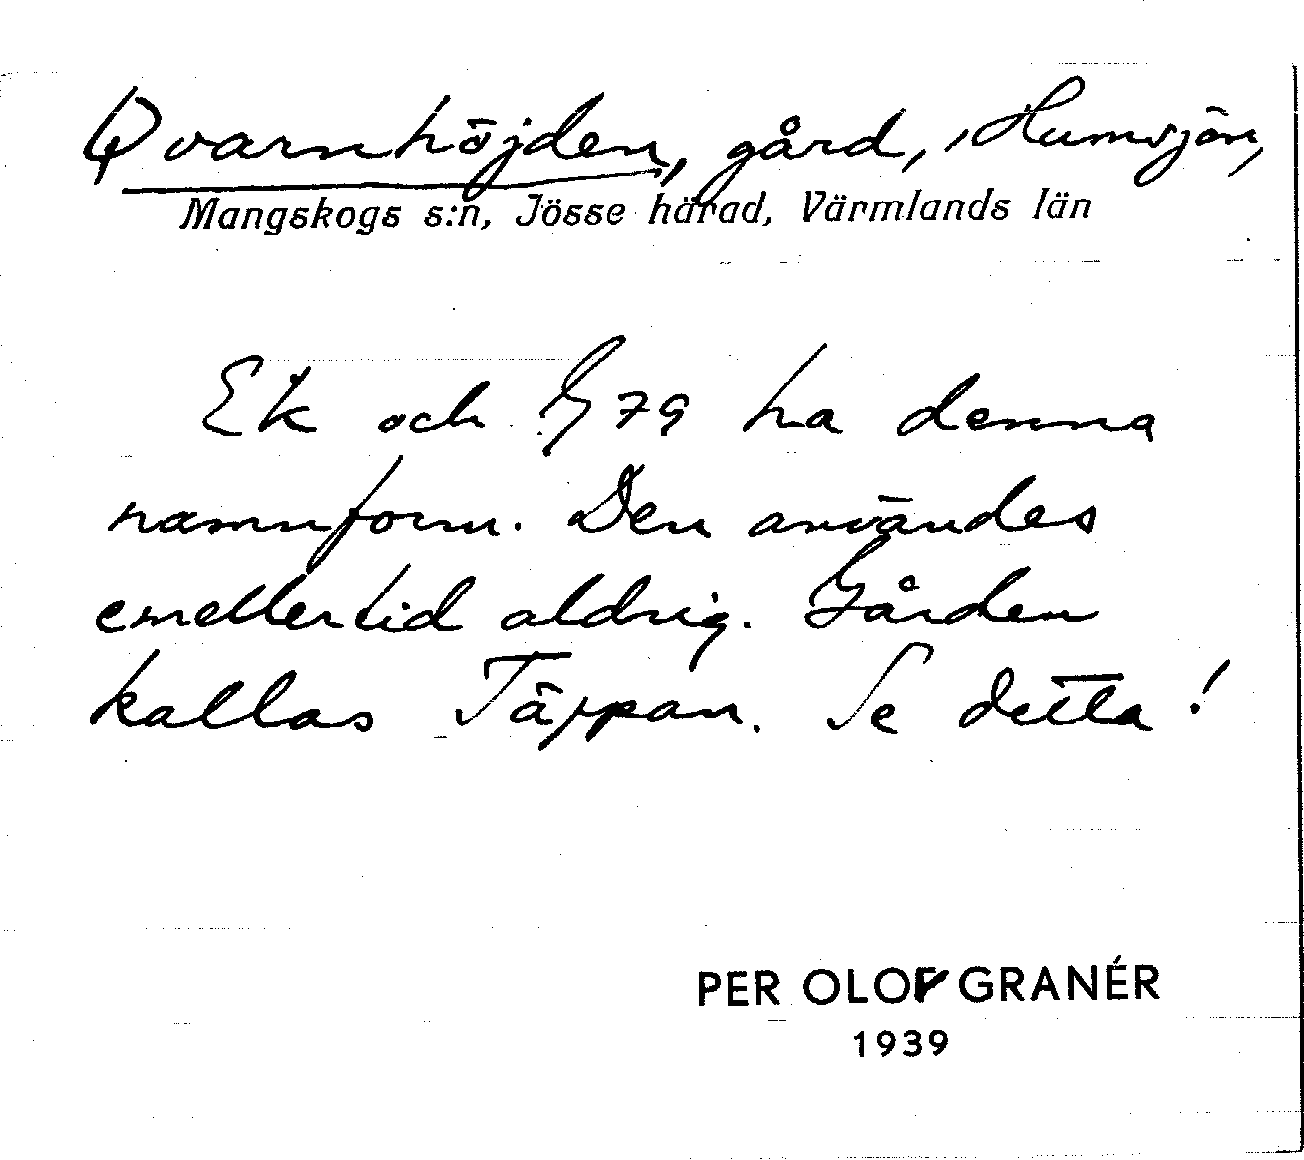 Qvarnhöjden, gård, Humsjön,
Mangskogs s:n, Jösse härad, Värmlands län
Ek och G 79 ha denna
namnform. Den användes
emellertid aldrig. Gården
kallas Täppan. Se detta!
PER OLOF GRANÉR
1939